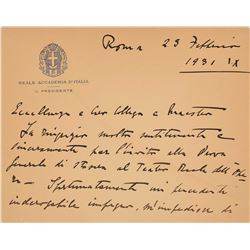 REALE ACCADEMIA D'ITALIA
IL PRESIDENTE
Roma 23 Febbraio
1931 IX
Eccellenza e Caro Collega e Maestro
La ringrazio molto sentitamente e
sinceramente per l'invito alla Prova
Generale di al Teatro Reale dell'
Sfortunatamente un precedente
inderogabile impegno, m'impedisce di